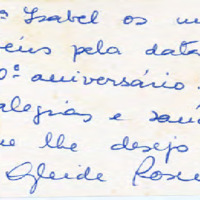 ª Isabel os m
béns pela data
0º aniversário.
alegrias e saú
ue lhe desejo
Gleide Rose